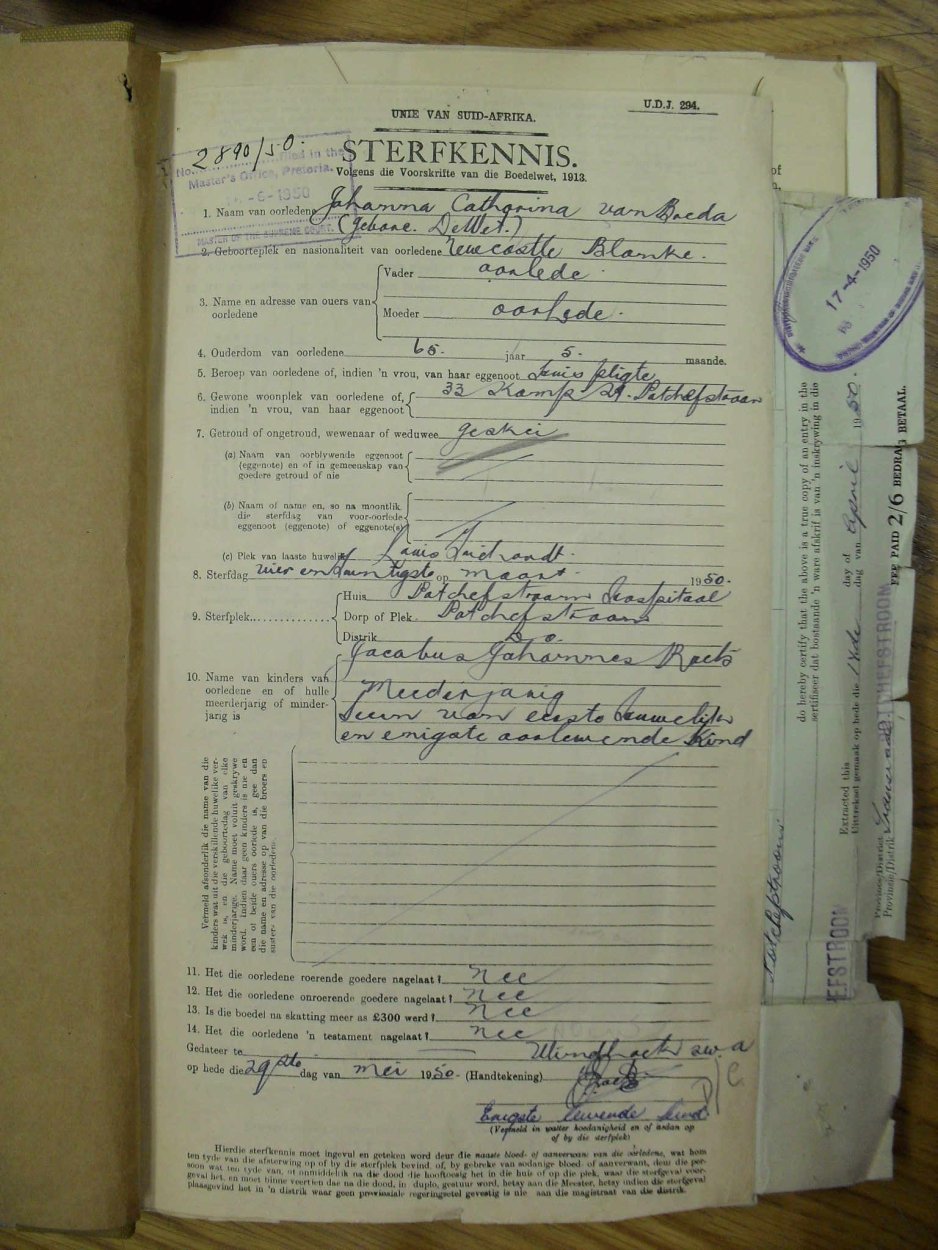 U.D.J. 294.
UNIE VAN SUID-AFRIKA.
2890/50.
STERFKENNIS.
Volgens die Voorskrifte van die Boedelwet, 1913.
No. Filed in the
Master's Office, Pretoria.
-6-1950
MASTER OF THE SUPREME COURT.
1. Naam van oorledene Johanna Catherina van Breda
(gebore. De Wet.)
2. Geboorteplek en nasionaliteit van oorledene Newcastle Blanke.
3. Name en adresse van ouers van oorledene
Vader oorlede.
Moeder oorlede.
4. Ouderdom van oorledene 65. jaar 5. maande.
5. Beroep van oorledene of, indien 'n vrou, van haar eggenoot Huis pligte
6. Gewone woonplek van oorledene of, indien 'n vrou, van haar eggenoot
33 Kamp 29. Potchefstroom
7. Getroud of ongetroud, wewenaar of weduwee geskei
(a) Naam van oorblywende eggenoot
(eggenote) en of in gemeenskap van
goedere getroud of nie
(b) Naam of name en, so na moontlik,
die sterfdag van voor-oorlede
eggenoot (eggenote) of eggenote(s)
(c) Plek van laaste huwelik Louis Trichardt.
8. Sterfdag vier en twintigste op Maart 1950.
9. Sterfplek
Huis Potchefstroom Hospitaal
Dorp of Plek Potchefstroom
Distrik Do.
10. Name van kinders van
oorledene en of hulle
meerderjarig of minder-
jarig is
Jacobus Johannes
Meerderjarig
Seun van eerste huwelik
en enigste oorlewende Kind
Vermeld afsonderlik die name van die
kinders wat uit die verskillende huwelike ver-
wek is, en die geboortedag van elke
minderjarige. Name moet voluit geskrywe
word. Indien daar geen kinders is nie en
een of beide ouers oorlede is, gee dan
die name en adresse op van die broers en
susters van die oorledene.
11. Het die oorledene roerende goedere nagelaat? Nee
12. Het die oorledene onroerende goedere nagelaat? Nee
13. Is die boedel na skatting meer as £300 werd? Nee
14. Het die oorledene 'n testament nagelaat? Nee
Gedateer te Windhoek S.W.A
op hede die 29ste dag van Mei 1950. (Handtekening)
Enigste lewende kind
(Vermeld in watter hoedanigheid en of aldan op
of by die sterfplek)
Hierdie sterfkennis moet ingevul en geteken word deur die naaste bloed- of aanverwant van die oorledene, wat hom
ten tyde van die afsterwing op of by die sterfplek bevind of, by gebreke van sodanige bloed- of aanverwant, deur die per-
soon wat ten tyde van, of onmiddellik na die dood die hooftoesig het in die huis of op die plek, waar die sterfgeval voor-
geval het, en moet binne veertien dae na die dood, in duplo, gestuur word, hetsy aan die Meester, hetsy indien die sterfgeval
plaasgevind het in 'n distrik waar geen provinsiale regeringsetel gevestig is nie aan die magistraat van die distrik.
17-4-1950
do hereby certify that the above is a true copy of an entry in the
sertifiseer dat bostaande 'n ware afskrif is van 'n inskrywing in die
Extracted this day of
Uittreksel gemaak op hede die 17de dag van April 1950.
Province/District
Provinsie/Distrik
FEE PAID 2/6 BEDRAG BETAAL.
POTCHEFSTROOM
Potchefstroom
EFSTROOM